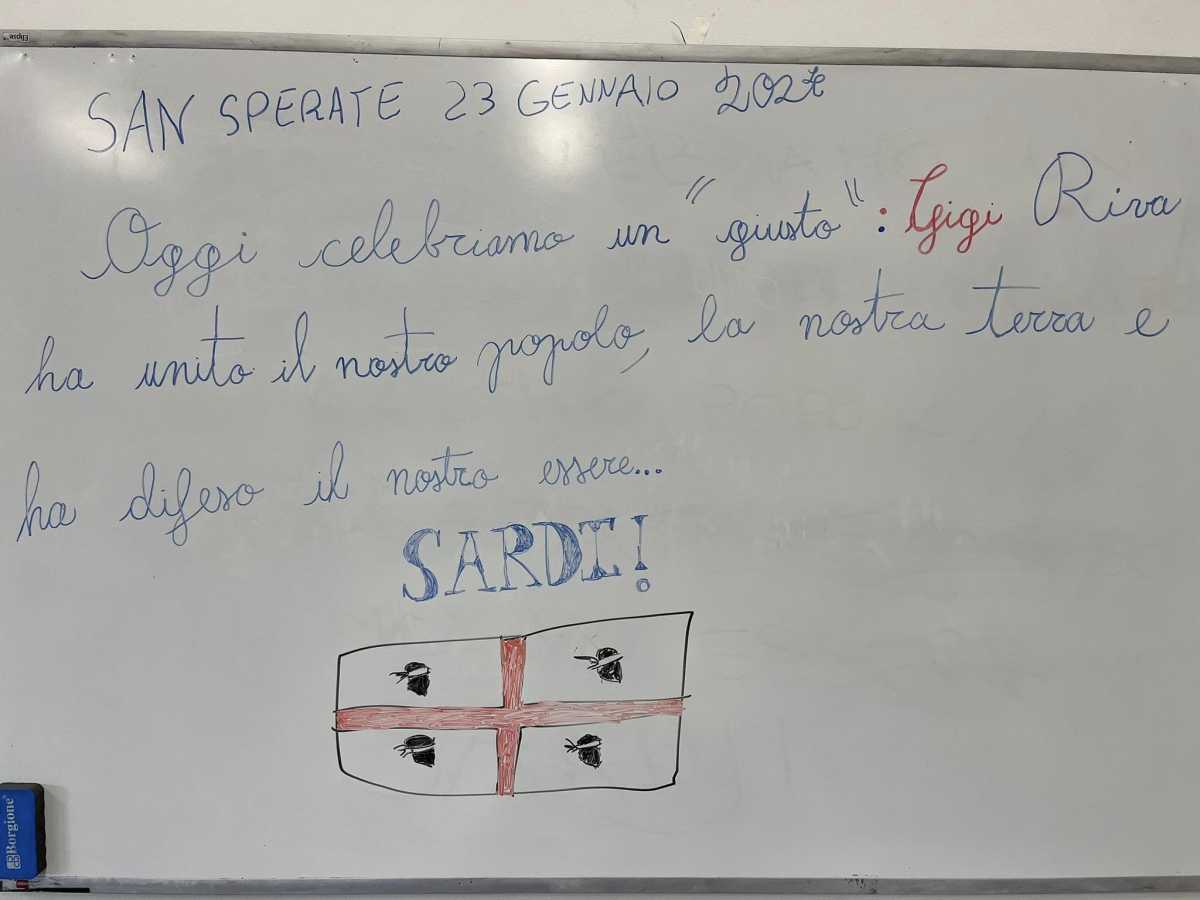 Elipse
SAN SPERATE 23 GENNAIO 2024
Oggi celebriamo un "giusto": Gigi Riva
ha unito il nostro popolo, la nostra terra e
ha difeso il nostro essere...
SARDI!
Borgione